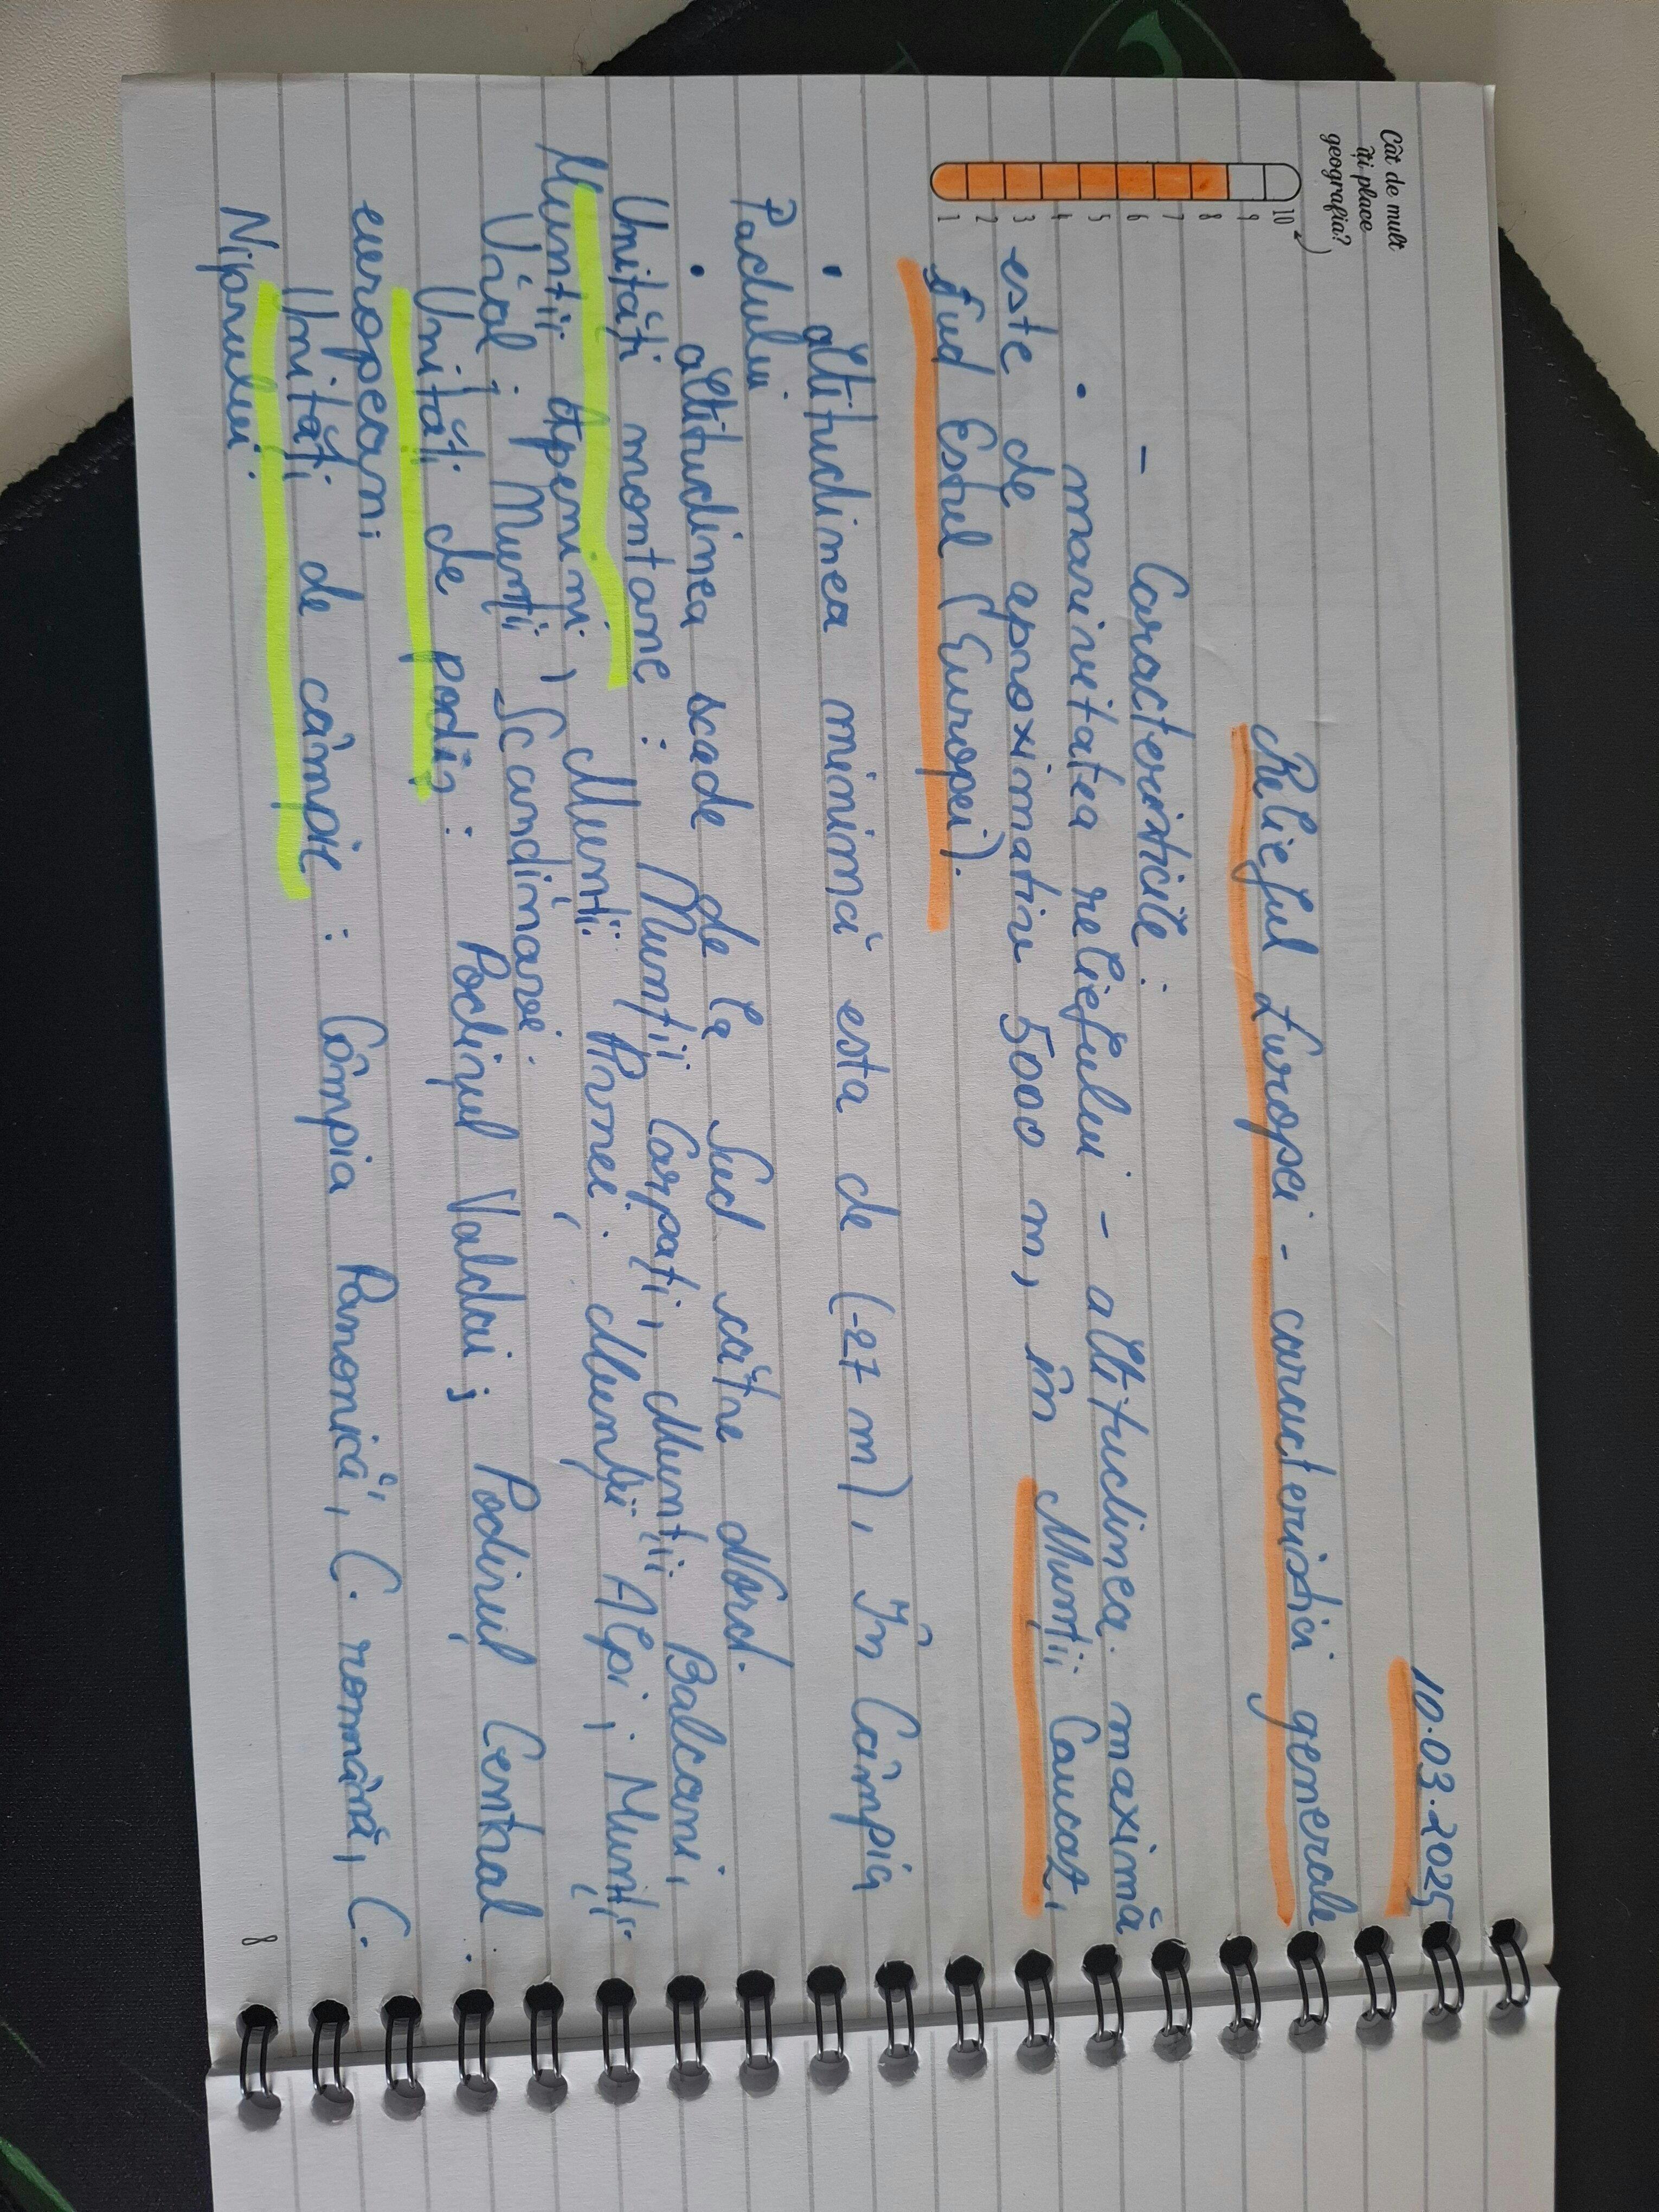 10.03.2025
Relieful Europei - caracteristici generale
Cât de mult
îți place
geografia?
10
9
8
7
6
5
4
3
2
1
- Caracteristicile:
• masivitatea reliefului - altitudinea maximă
este de aproximativ 5000 m, în Munții Caucaz,
Sud Estul (Europei).
• altitudinea minimă esta de (-27 m), În Câmpia
Padului
• altitudinea scade de la Sud către Nord.
Unități montane: Munții Carpați, Munții Balcani,
Munții Apenini, Munții Pirinei; Munții Alpi; Munții
Ural; Munții Scandinavi.
Unități de podiș: Podișul Valdai; Podișul Central
european;
Unități de câmpie: Câmpia Panonică, C. română, C.
Niprului.
8